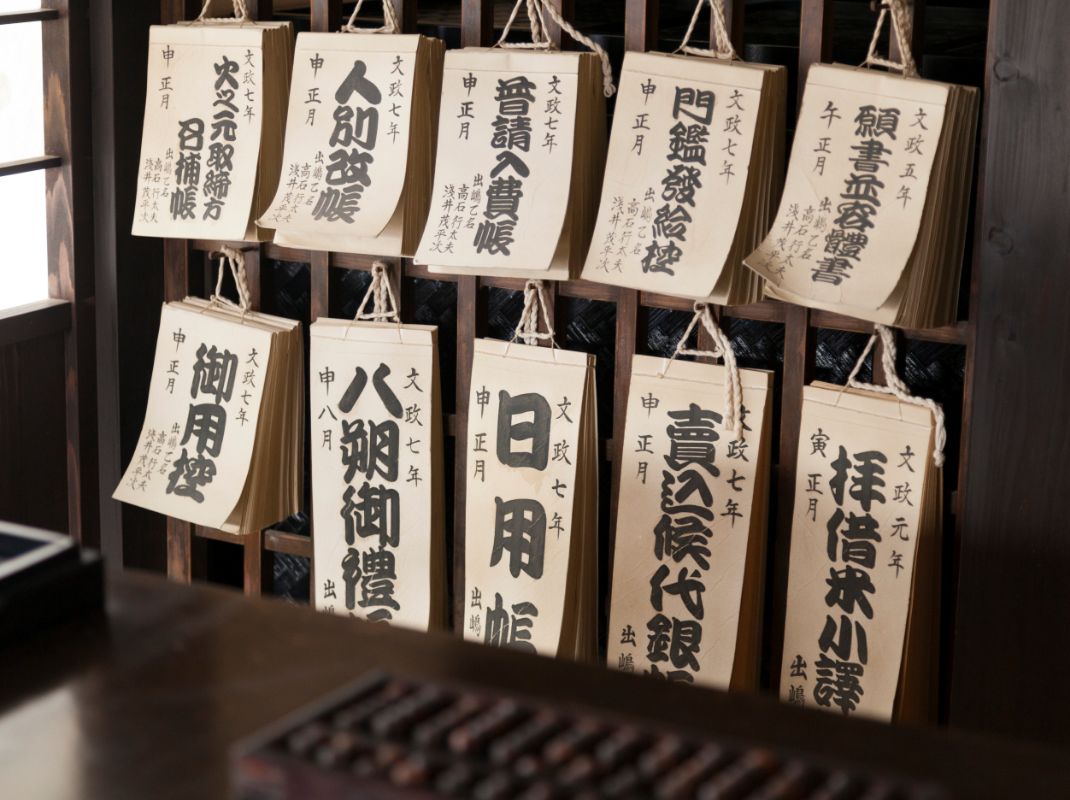 文政五年
願書並容體書
午 正月
出嶋乙名
高石行太夫
浅井茂平次
文政七年
門鑑發給控
申 正月
出嶋乙名
高石行太夫
浅井茂平次
文政七年
普請入費帳
申 正月
出嶋乙名
高石行太夫
浅井茂平次
文政七年
人別改帳
申 正月
出嶋乙名
高石行太夫
浅井茂平次
文政七年
火之元取締方
召捕帳
申 正月
出嶋乙名
高石行太夫
浅井茂平次
文政元年
拝借米小譯
寅 正月
出嶋
文政七年
賣込候代銀
申 正月
出嶋
文政七年
日用帳
申 正月
出嶋
文政七年
八朔御禮
申 八月
出嶋
文政七年
御用控
申 正月
出嶋乙名
高石行太夫
浅井茂平次